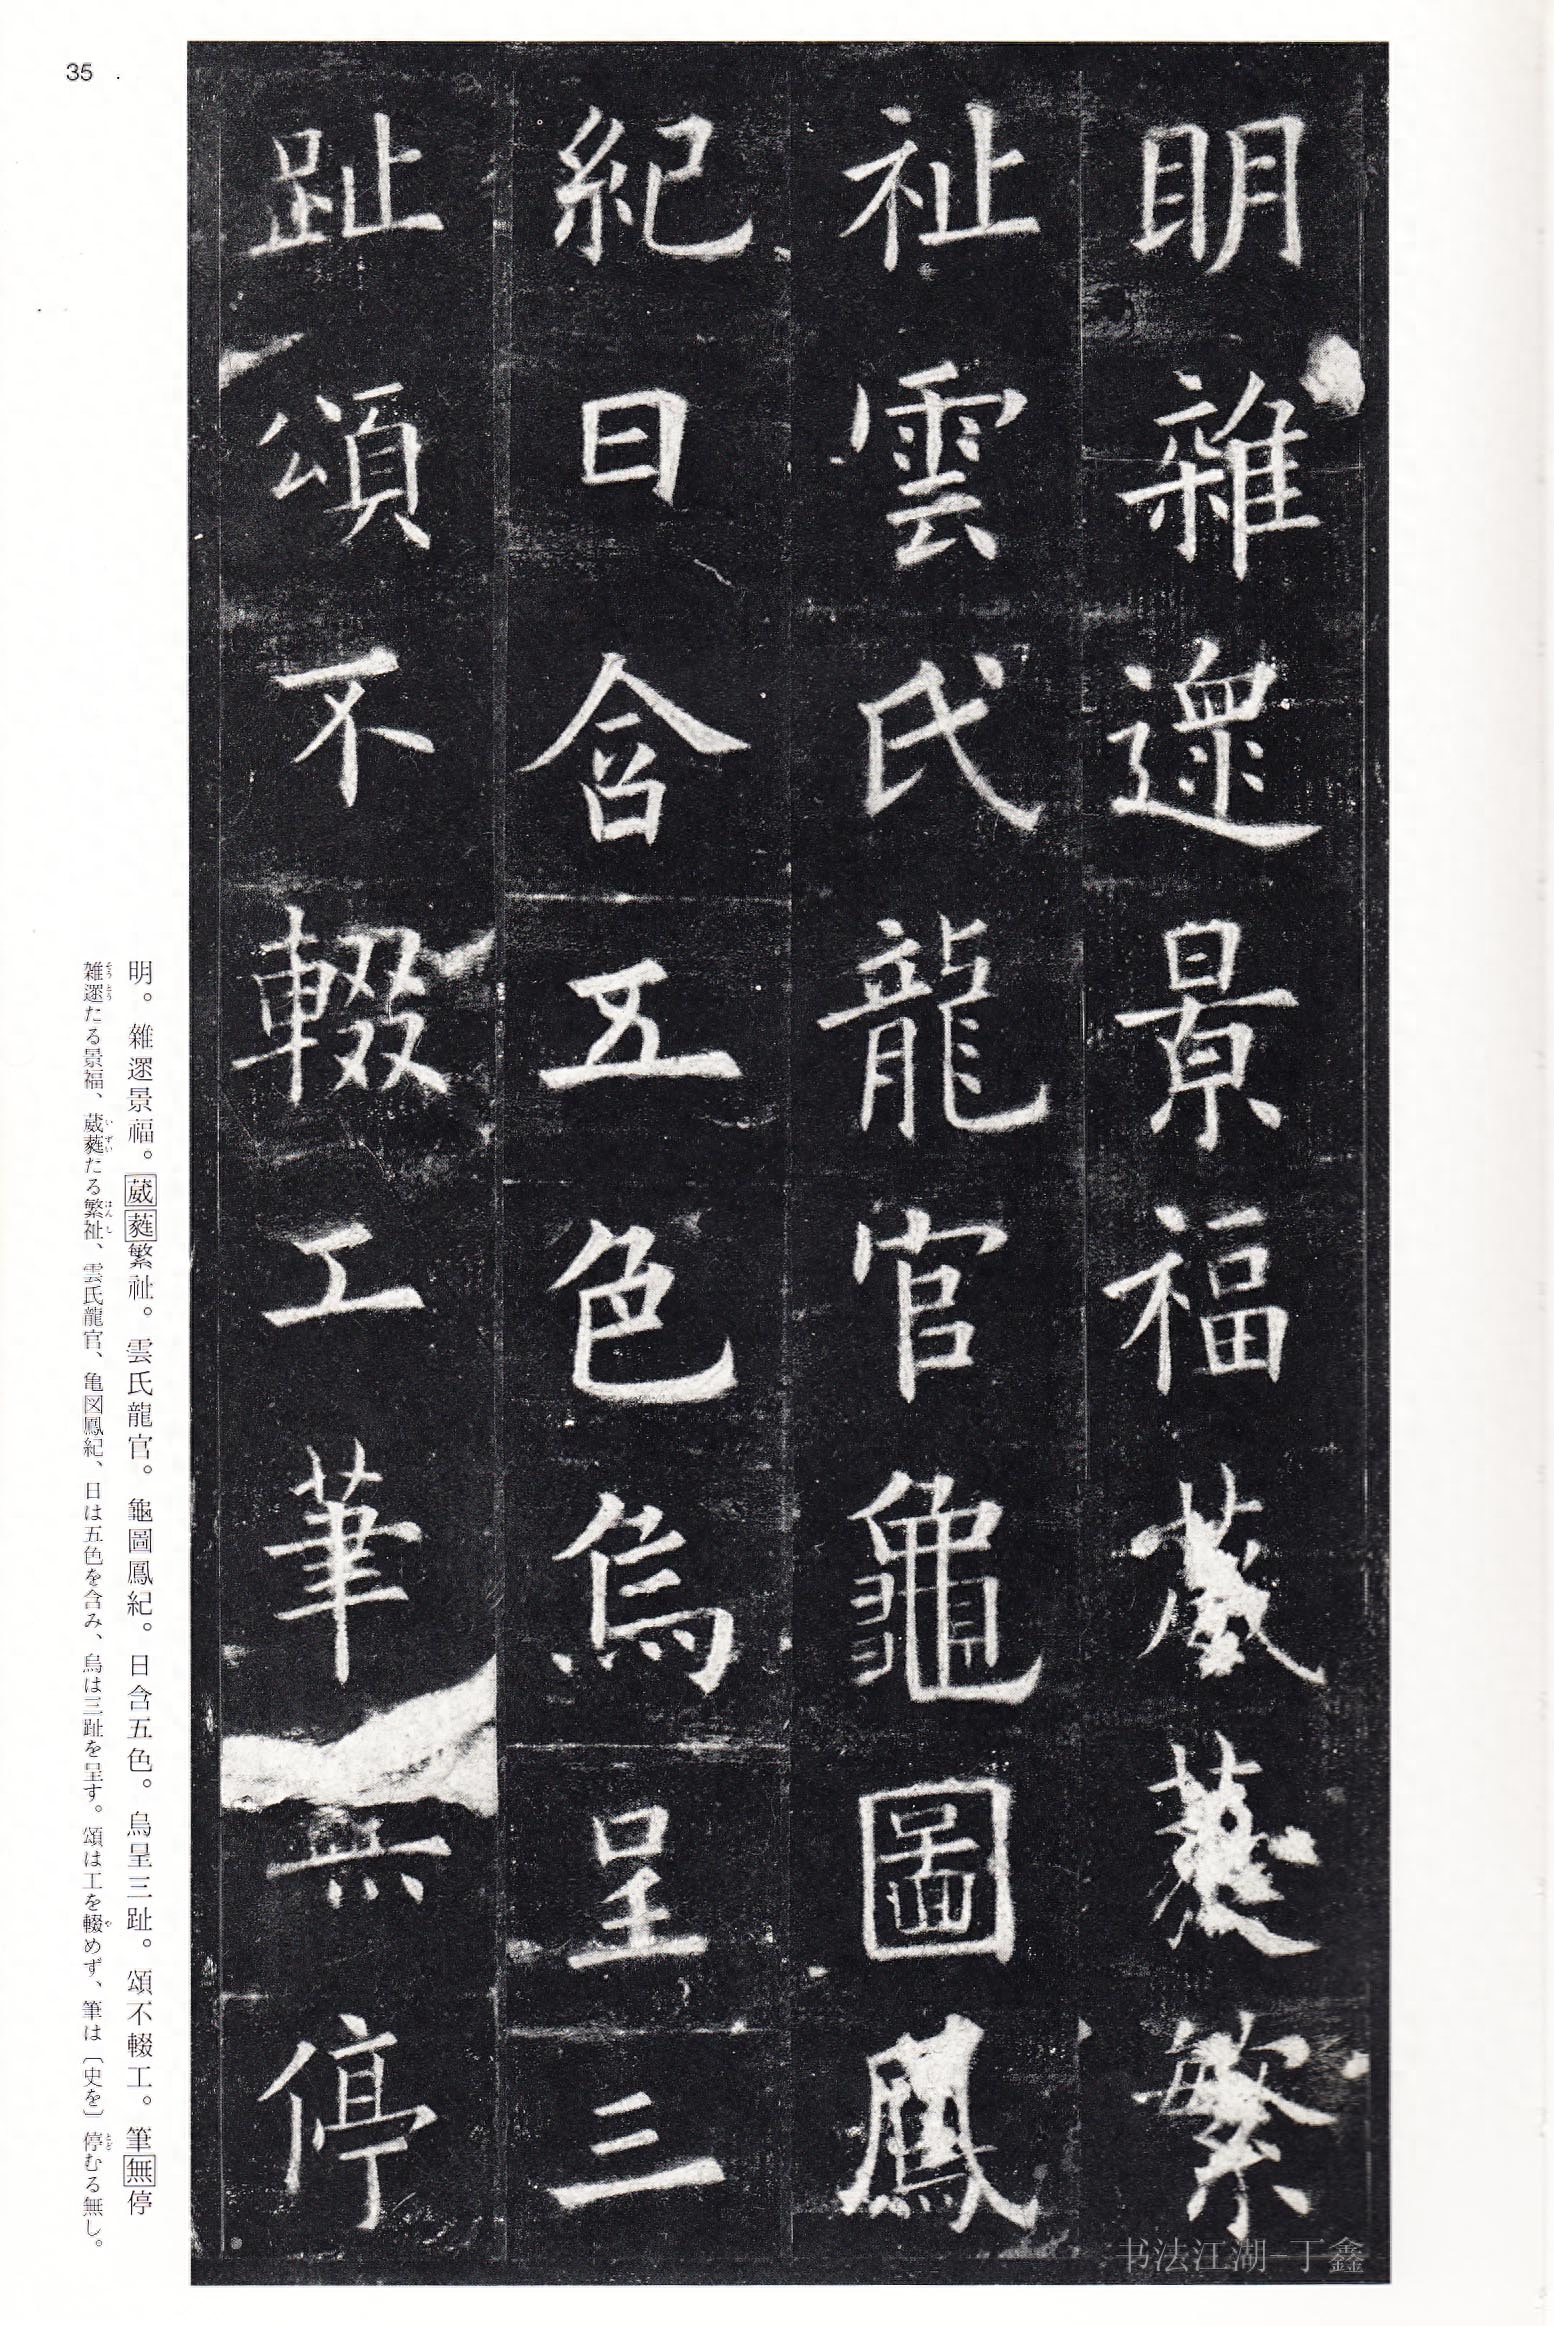 明雜遝景福葳蕤繁
祉雲氏龍官龜圖鳳
紀日含五色烏呈三
趾頌不輟工筆無停
明。雜遝景福。葳蕤繁祉。雲氏龍官。龜圖鳳紀。日含五色。烏呈三趾。頌不輟工。筆無停
雑遝たる景福、葳蕤たる繁祉、雲氏龍官、亀図鳳紀、日は五色を含み、烏は三趾を呈す。頌は工を輟めず、筆は〔史を〕停むる無し。
35
书法江湖-丁鑫